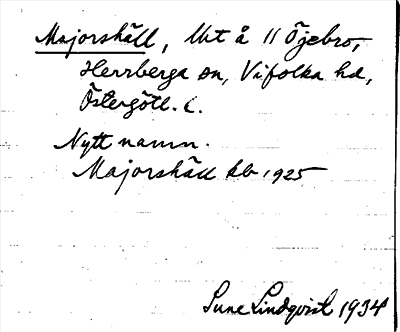 Majorshäll, Utt å 11 Öjebro,
Herrberga sn, Vifolka hd,
Östergötl. L.
Nytt namn.
Majorshäll kb 1925
Sune Lindqvist 1934